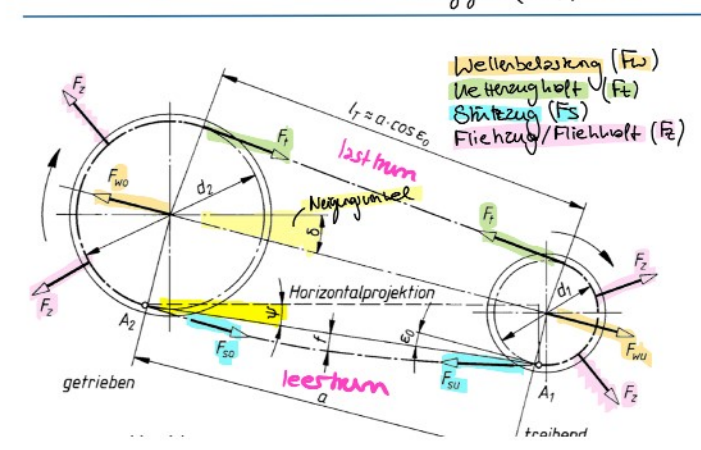 Wellenbelastung (Fw)
Kettenzugkraft (Ft)
Stützzug (Fs)
Fliehzug/Fliehkraft (Fz)
Fz
Ft
lT ≈ a·cosε0
lasttrum
Fwo
d2
Neigungswinkel
δ
Ft
Fz
Fz
Horizontalprojektion
d1
A2
ψ
f
ε0
Fso
Fwu
Fsu
getrieben
leertrum
a
A1
Fz
treibend